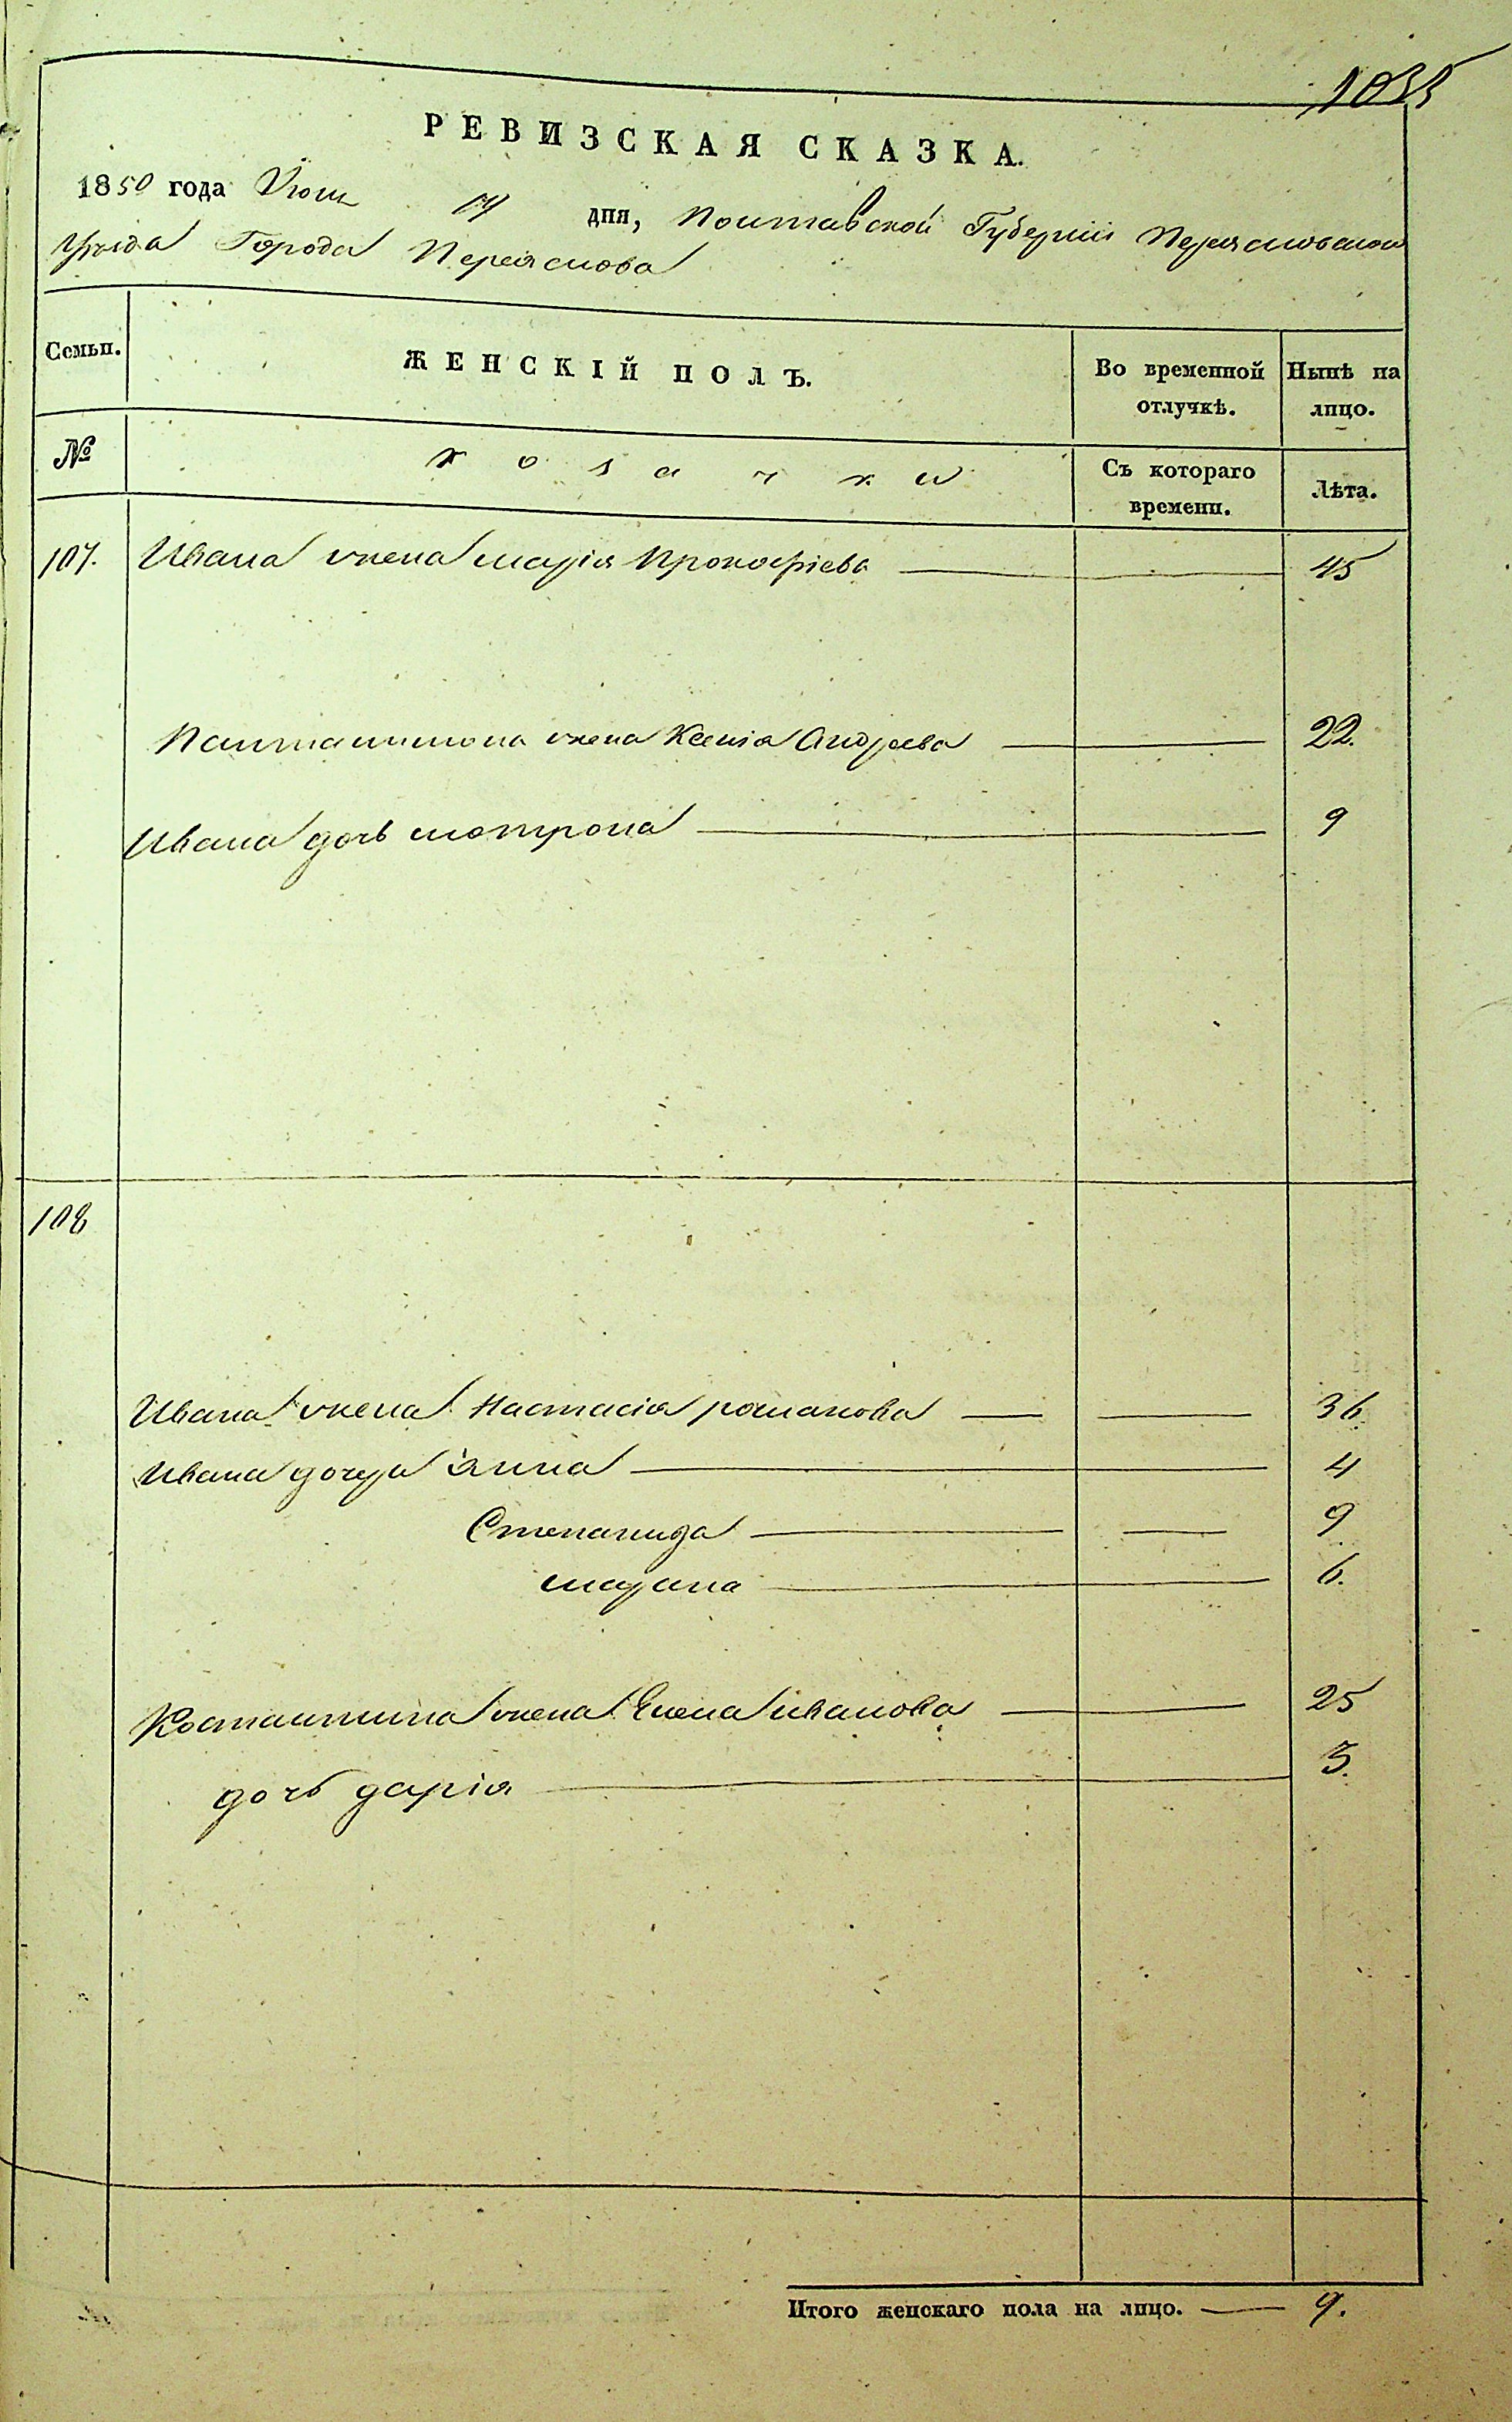 РЕВИЗСКАЯ СКАЗКА.
1850 года Июня 17 дня, Полтавской Губерніи Переясловскаго
уѣзда Города Переяслова
Семьи. ЖЕНСКІЙ ПОЛЪ. Во временной отлучкѣ. Нынѣ на лицо.
№ козачки Съ котораго времени. Лѣта.
107. Ивана жена марія Прокофіева 45
Пантилимона жена Ксенія Андреева 22.
Ивана дочь мотрона 9
108
Ивана жена Настасія романова 36
Ивана дочери анна 4
Степанида 9
маряна 6.
Костантина жена Елена иванова 25
дочь дарія 3.
Итого женскаго пола на лицо. 9.